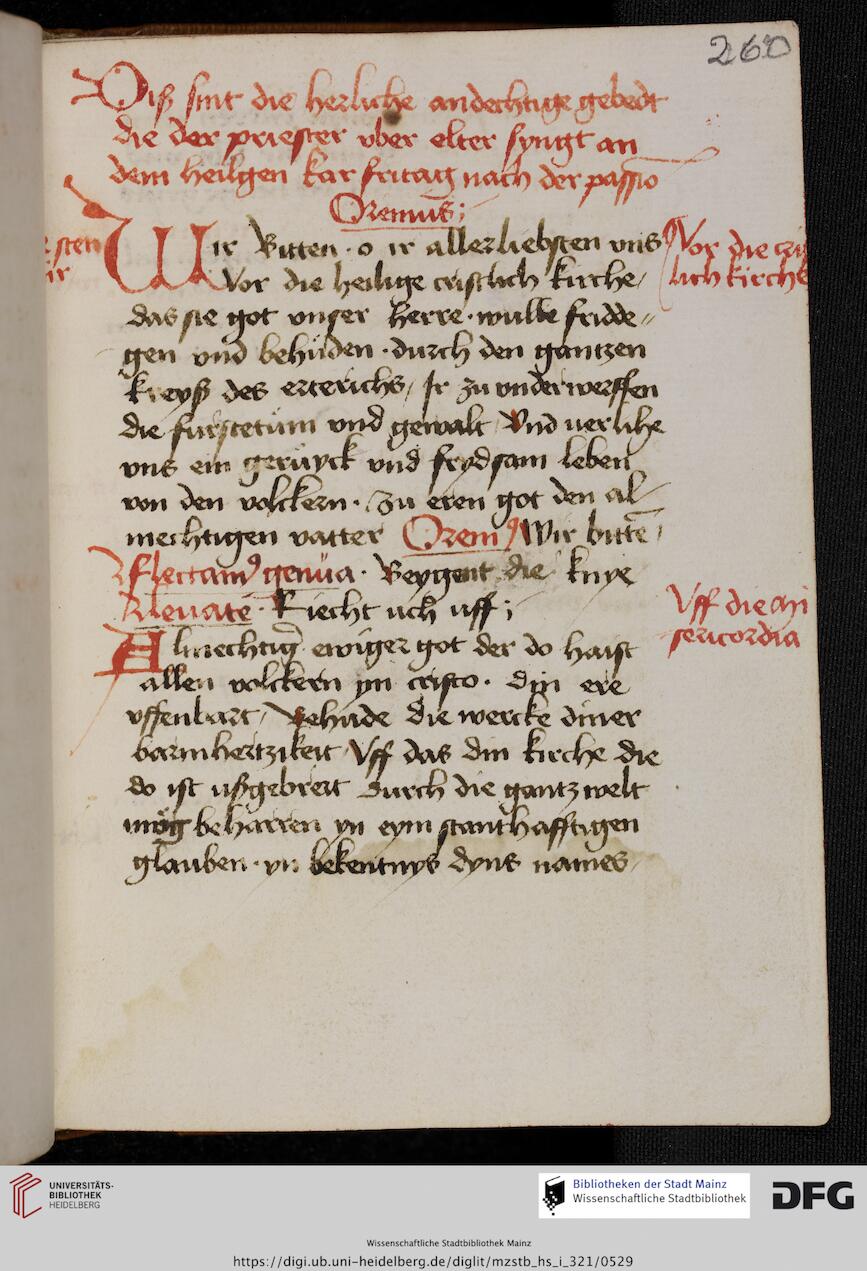 260
Diß sint die herliche andechtige gebedt
die der priester vber elter syngt an
dem heilgen kar fritag nach der passio
Oremus;
Wir Bitten · o ir allerliebsten vns
Vor die heilige cristlich kirche,
das sie got vnser herre · wulle fridde〃
gen vnd behüden · durch den gantzen
kreyß des erterichs, Ir zu vnderwerffen
die furstetům vnd gewalt, Vnd verlihe
vns ein gerüyck vnd frydsam leben
von den volckern · Zu eren got den al⸗
mechtigen vatter Orem⁹ Wir bittē,
Flectam⁹ genüa · Beygent die knye
Leuate · Riecht uch uff;
Almechtig̛ ewiger got der do haist
allen volckern yn cristo · din ere
vffenbart, Behüde die wercke diner
barmhertzikeit, Vff das din kirche die
do ist ußgebreit durch die gantz welt
mög beharren yn eym stanthafftigen
glauben · yn bekentnys dyns names,
sten
ir
Vor die cri
lich kirche
Vff die mi
sericordia
UNIVERSITÄTS-
BIBLIOTHEK
HEIDELBERG
Bibliotheken der Stadt Mainz
Wissenschaftliche Stadtbibliothek
DFG
Wissenschaftliche Stadtbibliothek Mainz
https://digi.ub.uni-heidelberg.de/diglit/mzstb_hs_i_321/0529